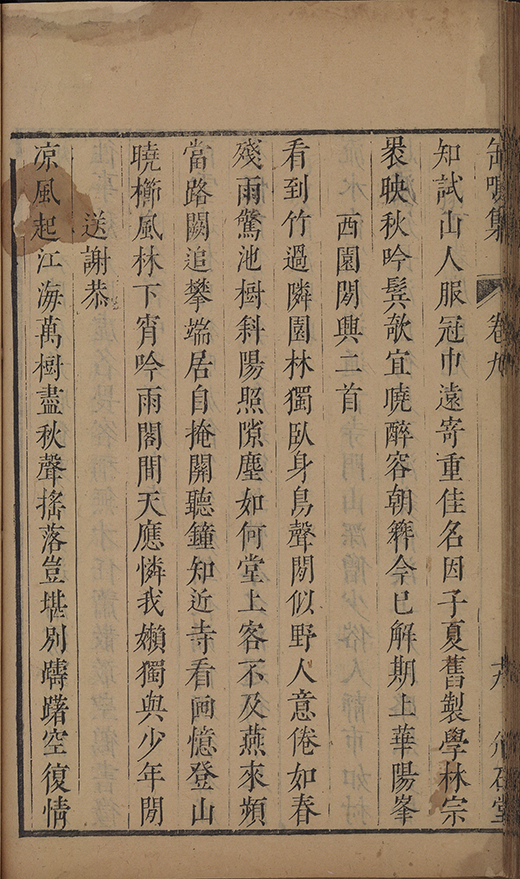 缶鳴集 卷九 九 竹石堂
知試山人服冠巾遠寄重佳名因子夏舊製學林宗
裊映秋吟鬂欹宜曉醉容朝簪今已解期上華陽峯
西園閒興二首
看到竹過隣園林獨臥身鳥聲閒似野人意倦如春
殘雨驚池樹斜陽照隙塵如何堂上客不及燕來頻
當路闕追攀端居自掩關聽鐘知近寺看畫憶登山
曉櫛風林下宵吟雨閣間天應憐我嬾獨與少年閒
送謝恭
凉風起江海萬樹盡秋聲搖落豈堪別躊躇空復情